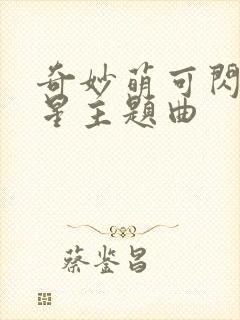 奇妙萌可閃
星主題曲
蔡鉴昌